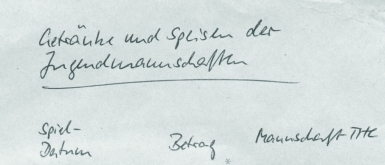 Getränke und Speisen der
Jugendmannschaften
Spiel-
Datum
Betrag
Mannschaft